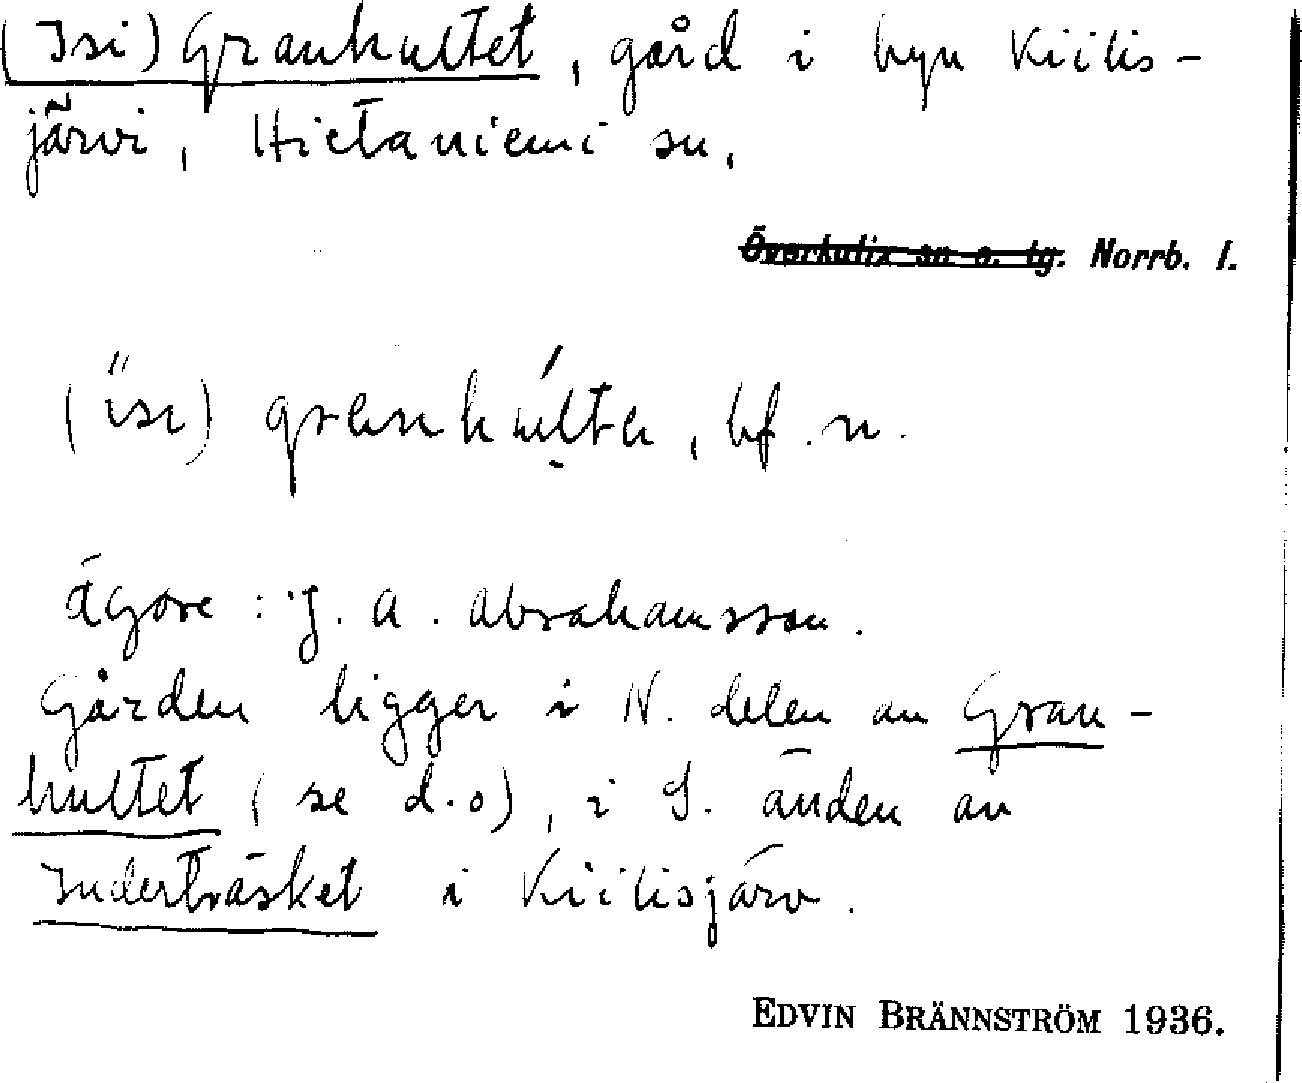 (Isi) Grankultet, gård i byn Kiilis-
järvi, Hietaniemi sn,
Överkalix sn o. tg. Norrb. l.
(ísı) grankúlta, bf. n.
ägare: J. A. Abrahamsson.
Gården ligger i N. delen av Gran-
kultet (se d.o), i S. änden av
Inderträsket i Kiilisjärv.
EDVIN BRÄNNSTRÖM 1936.